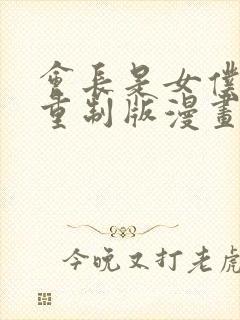 會長是女僕
重制版漫畫
今晚又打老虎